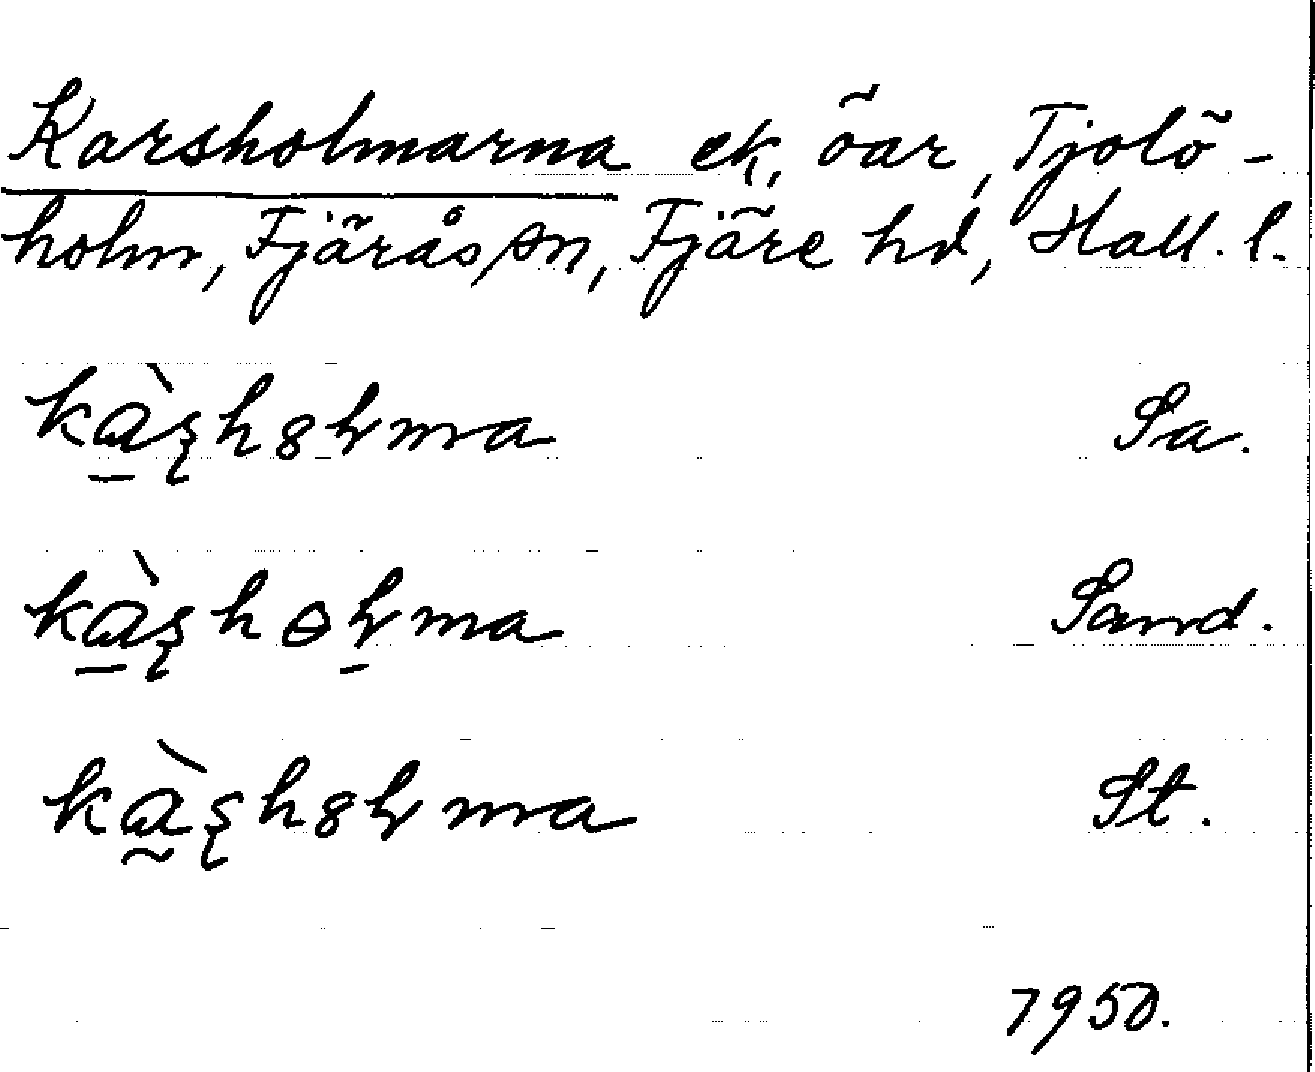 Karsholmarna ek, öar, Tjolö-
holm, Fjärås sn, Fjäre hd, Hall. l.
kàʂhꝏɫma Sa.
kàʂhɵɫma Sand.
kàʂhꝏɫma St.
1950.